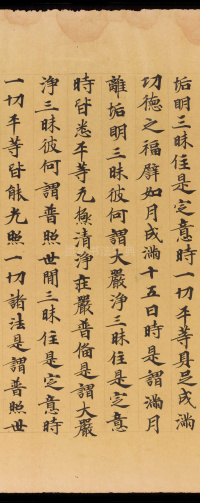 垢明三昧住是定意時一切平等身足成滿
功德之福譬如月成滿十五日時是謂滿月
離垢明三昧彼何謂大嚴淨三昧住是定意
時皆悉平等无極清淨莊嚴普備是謂大嚴
淨三昧彼何謂普照世間三昧住是定意時
一切平等皆能光照一切諸法是謂普照世